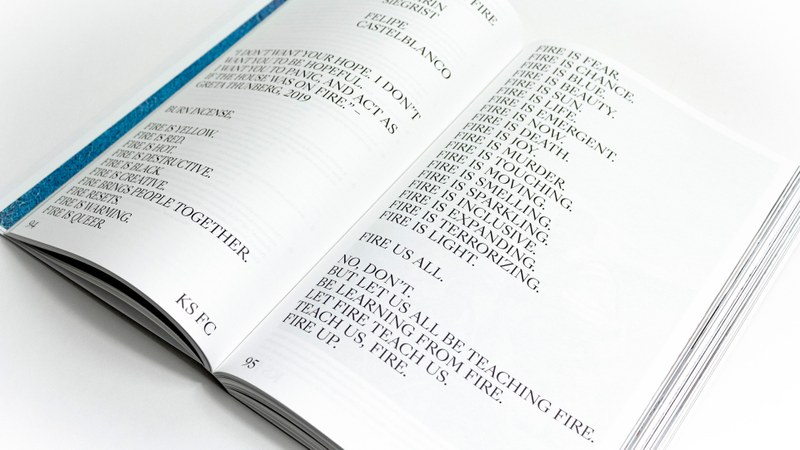 FIRE
SIEGRIST
FELIPE
CASTELBLANCO
"I DON'T WANT YOUR HOPE. I DON'T
WANT YOU TO BE HOPEFUL.
I WANT YOU TO PANIC, AND ACT AS
IF THE HOUSE WAS ON FIRE." –
GRETA THUNBERG, 2019
BURN INCENSE.
FIRE IS YELLOW.
FIRE IS RED.
FIRE IS HOT.
FIRE IS DESTRUCTIVE.
FIRE IS BLACK.
FIRE IS CREATIVE.
FIRE BRINGS PEOPLE TOGETHER.
FIRE RESETS.
FIRE IS WARMING.
FIRE IS QUEER.
94
KS FC
FIRE IS FEAR.
FIRE IS CHANCE.
FIRE IS BLUE.
FIRE IS BEAUTY.
FIRE IS SUN.
FIRE IS LIFE.
FIRE IS EMERGENT.
FIRE IS NOW.
FIRE IS DEATH.
FIRE IS JOY.
FIRE IS MURDER.
FIRE IS TOUCHING.
FIRE IS MOVING.
FIRE IS SMELLING.
FIRE IS SPARKLING.
FIRE IS INCLUSIVE.
FIRE IS EXPANDING.
FIRE IS TERRORIZING.
FIRE IS LIGHT.
FIRE US ALL.
NO, DON'T.
BUT LET US ALL BE TEACHING FIRE.
BE LEARNING FROM FIRE.
LET FIRE TEACH US.
TEACH US, FIRE.
FIRE UP.
95